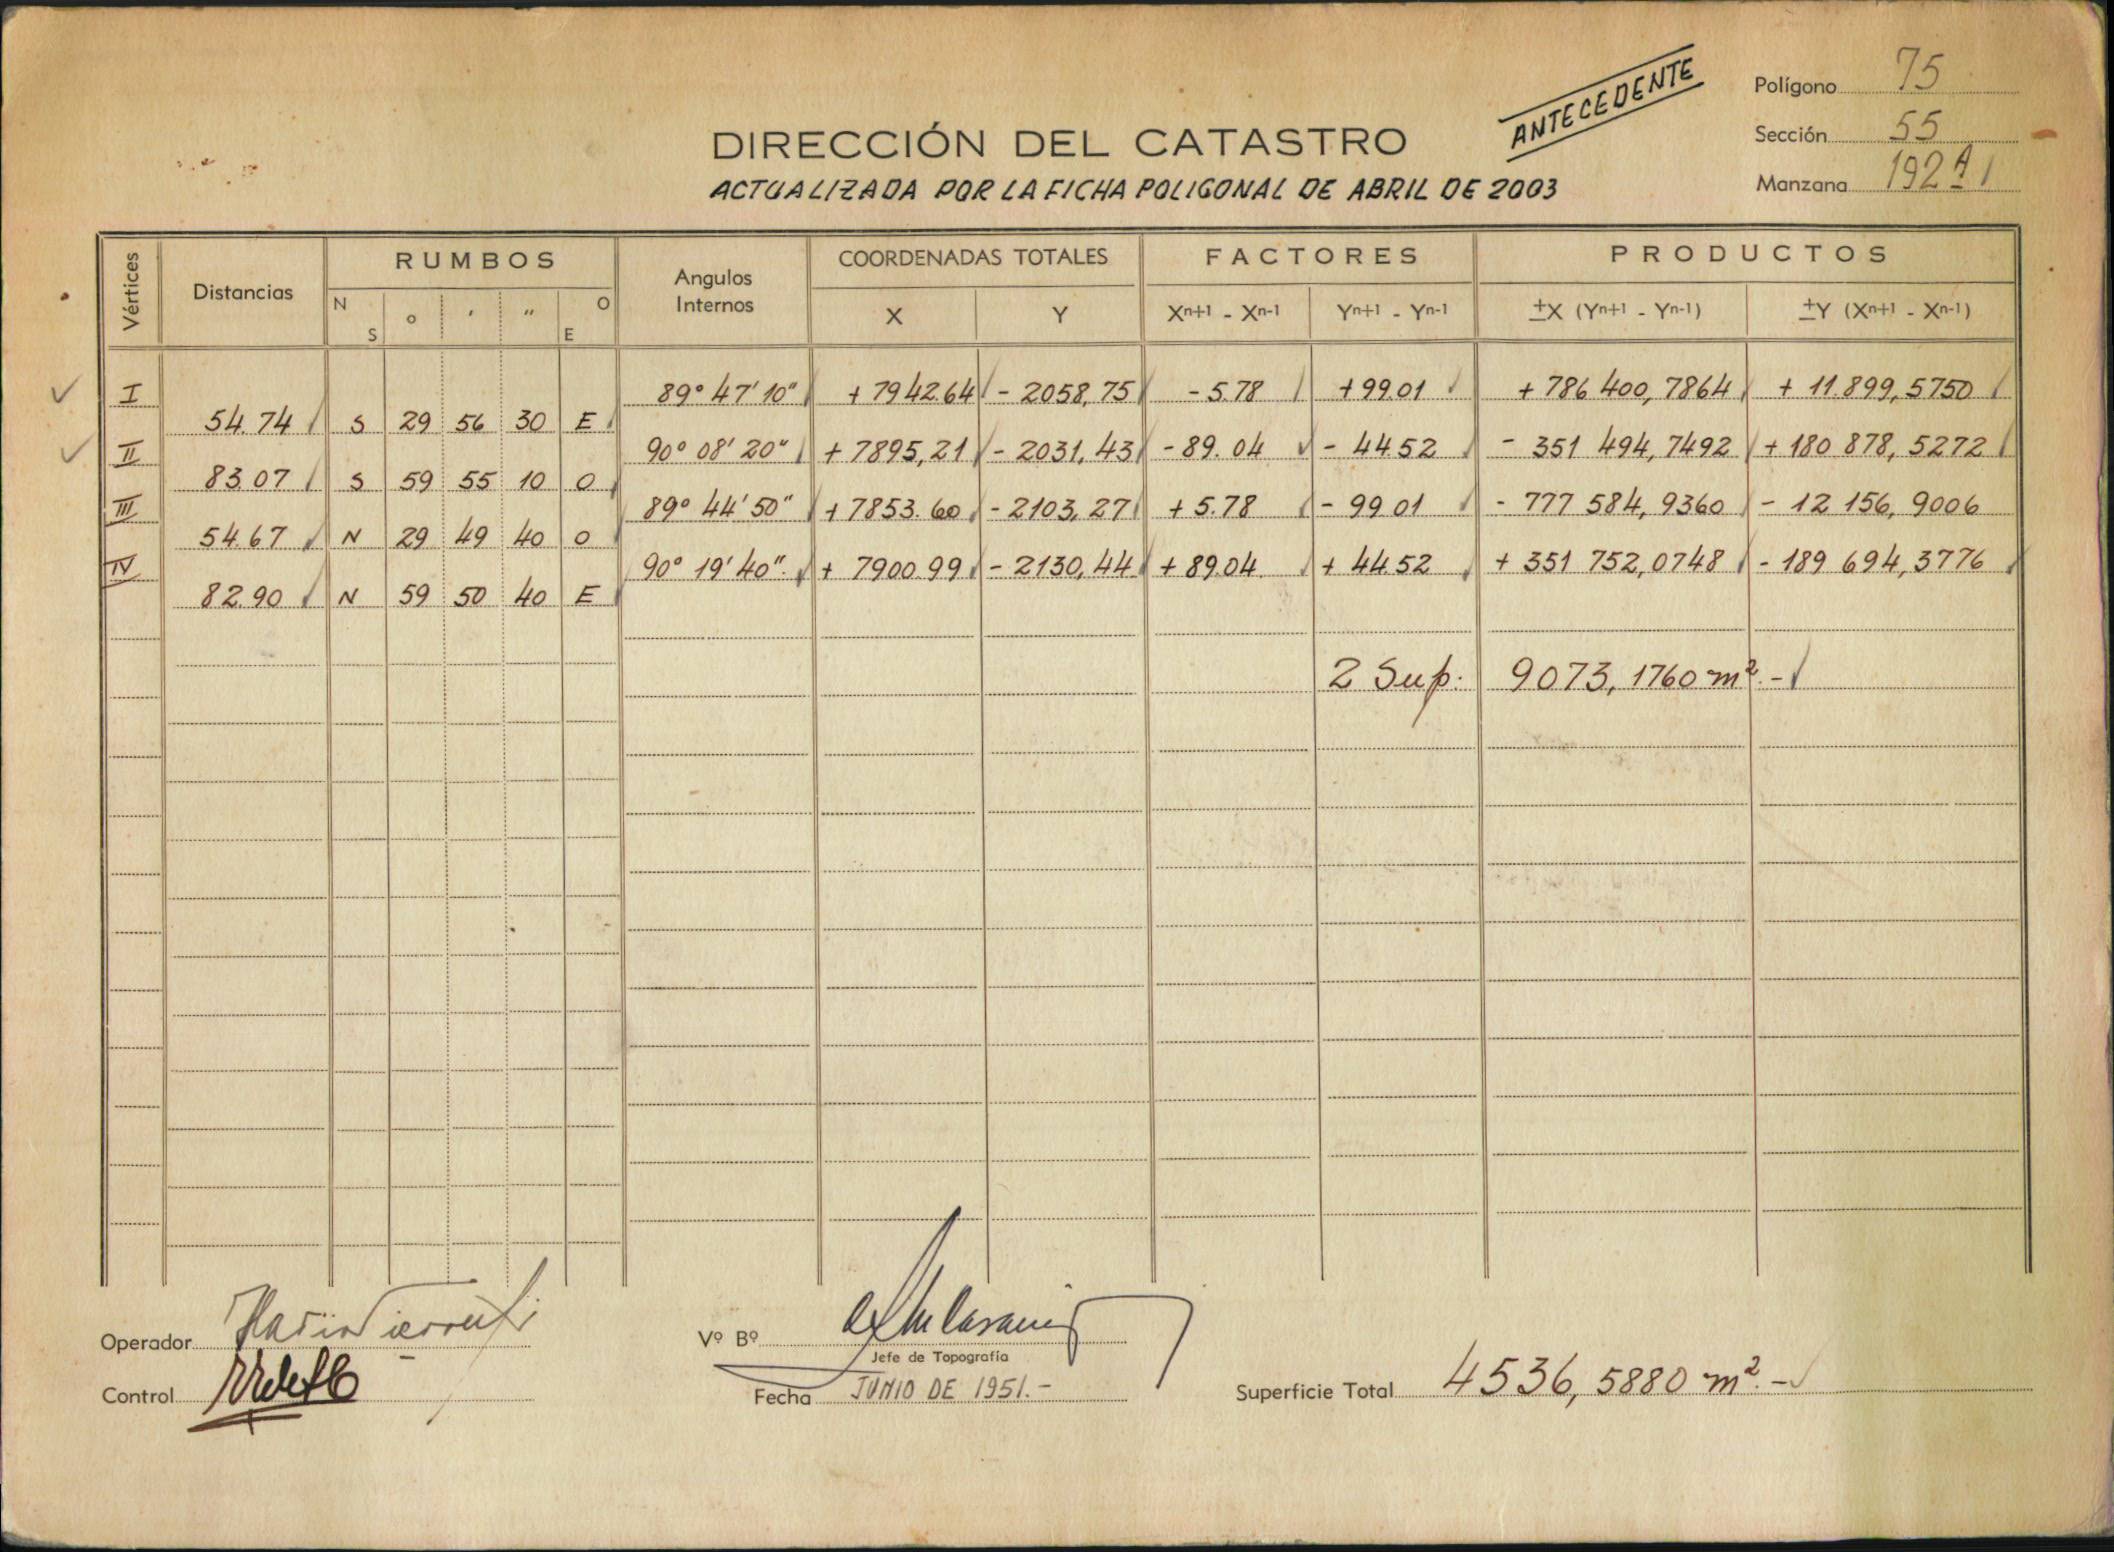 ANTECEDENTE
Polígono 75
Sección 55
Manzana 192 A
DIRECCIÓN DEL CATASTRO
ACTUALIZADA POR LA FICHA POLIGONAL DE ABRIL DE 2003
Vértices Distancias RUMBOS Angulos Internos COORDENADAS TOTALES FACTORES PRODUCTOS
N S ° ' " O E X Y Xn+1 - Xn-1 Yn+1 - Yn-1 ±X (Yn+1 - Yn-1) ±Y (Xn+1 - Xn-1)
I 89° 47' 10" + 7942.64 - 2058,75 - 5.78 + 99.01 + 786 400,7864 + 11.899,5750
54.74 S 29 56 30 E
II 90° 08' 20" + 7895,21 - 2031,43 - 89.04 - 44.52 - 351 494,7492 + 180 878,5272
83.07 S 59 55 10 O
III 89° 44' 50" + 7853.60 - 2103,27 + 5.78 - 99 01 - 777 584,9360 - 12 156,9006
54.67 N 29 49 40 O
IV 90° 19' 40" + 7900.99 - 2130,44 + 89.04 + 44.52 + 351 752,0748 - 189 694,3776
82.90 N 59 50 40 E
2 Sup. 9073,1760 m².-
Operador
Vº Bº
Jefe de Topografía
Control
Fecha JUNIO DE 1951.-
Superficie Total 4536,5880 m².-